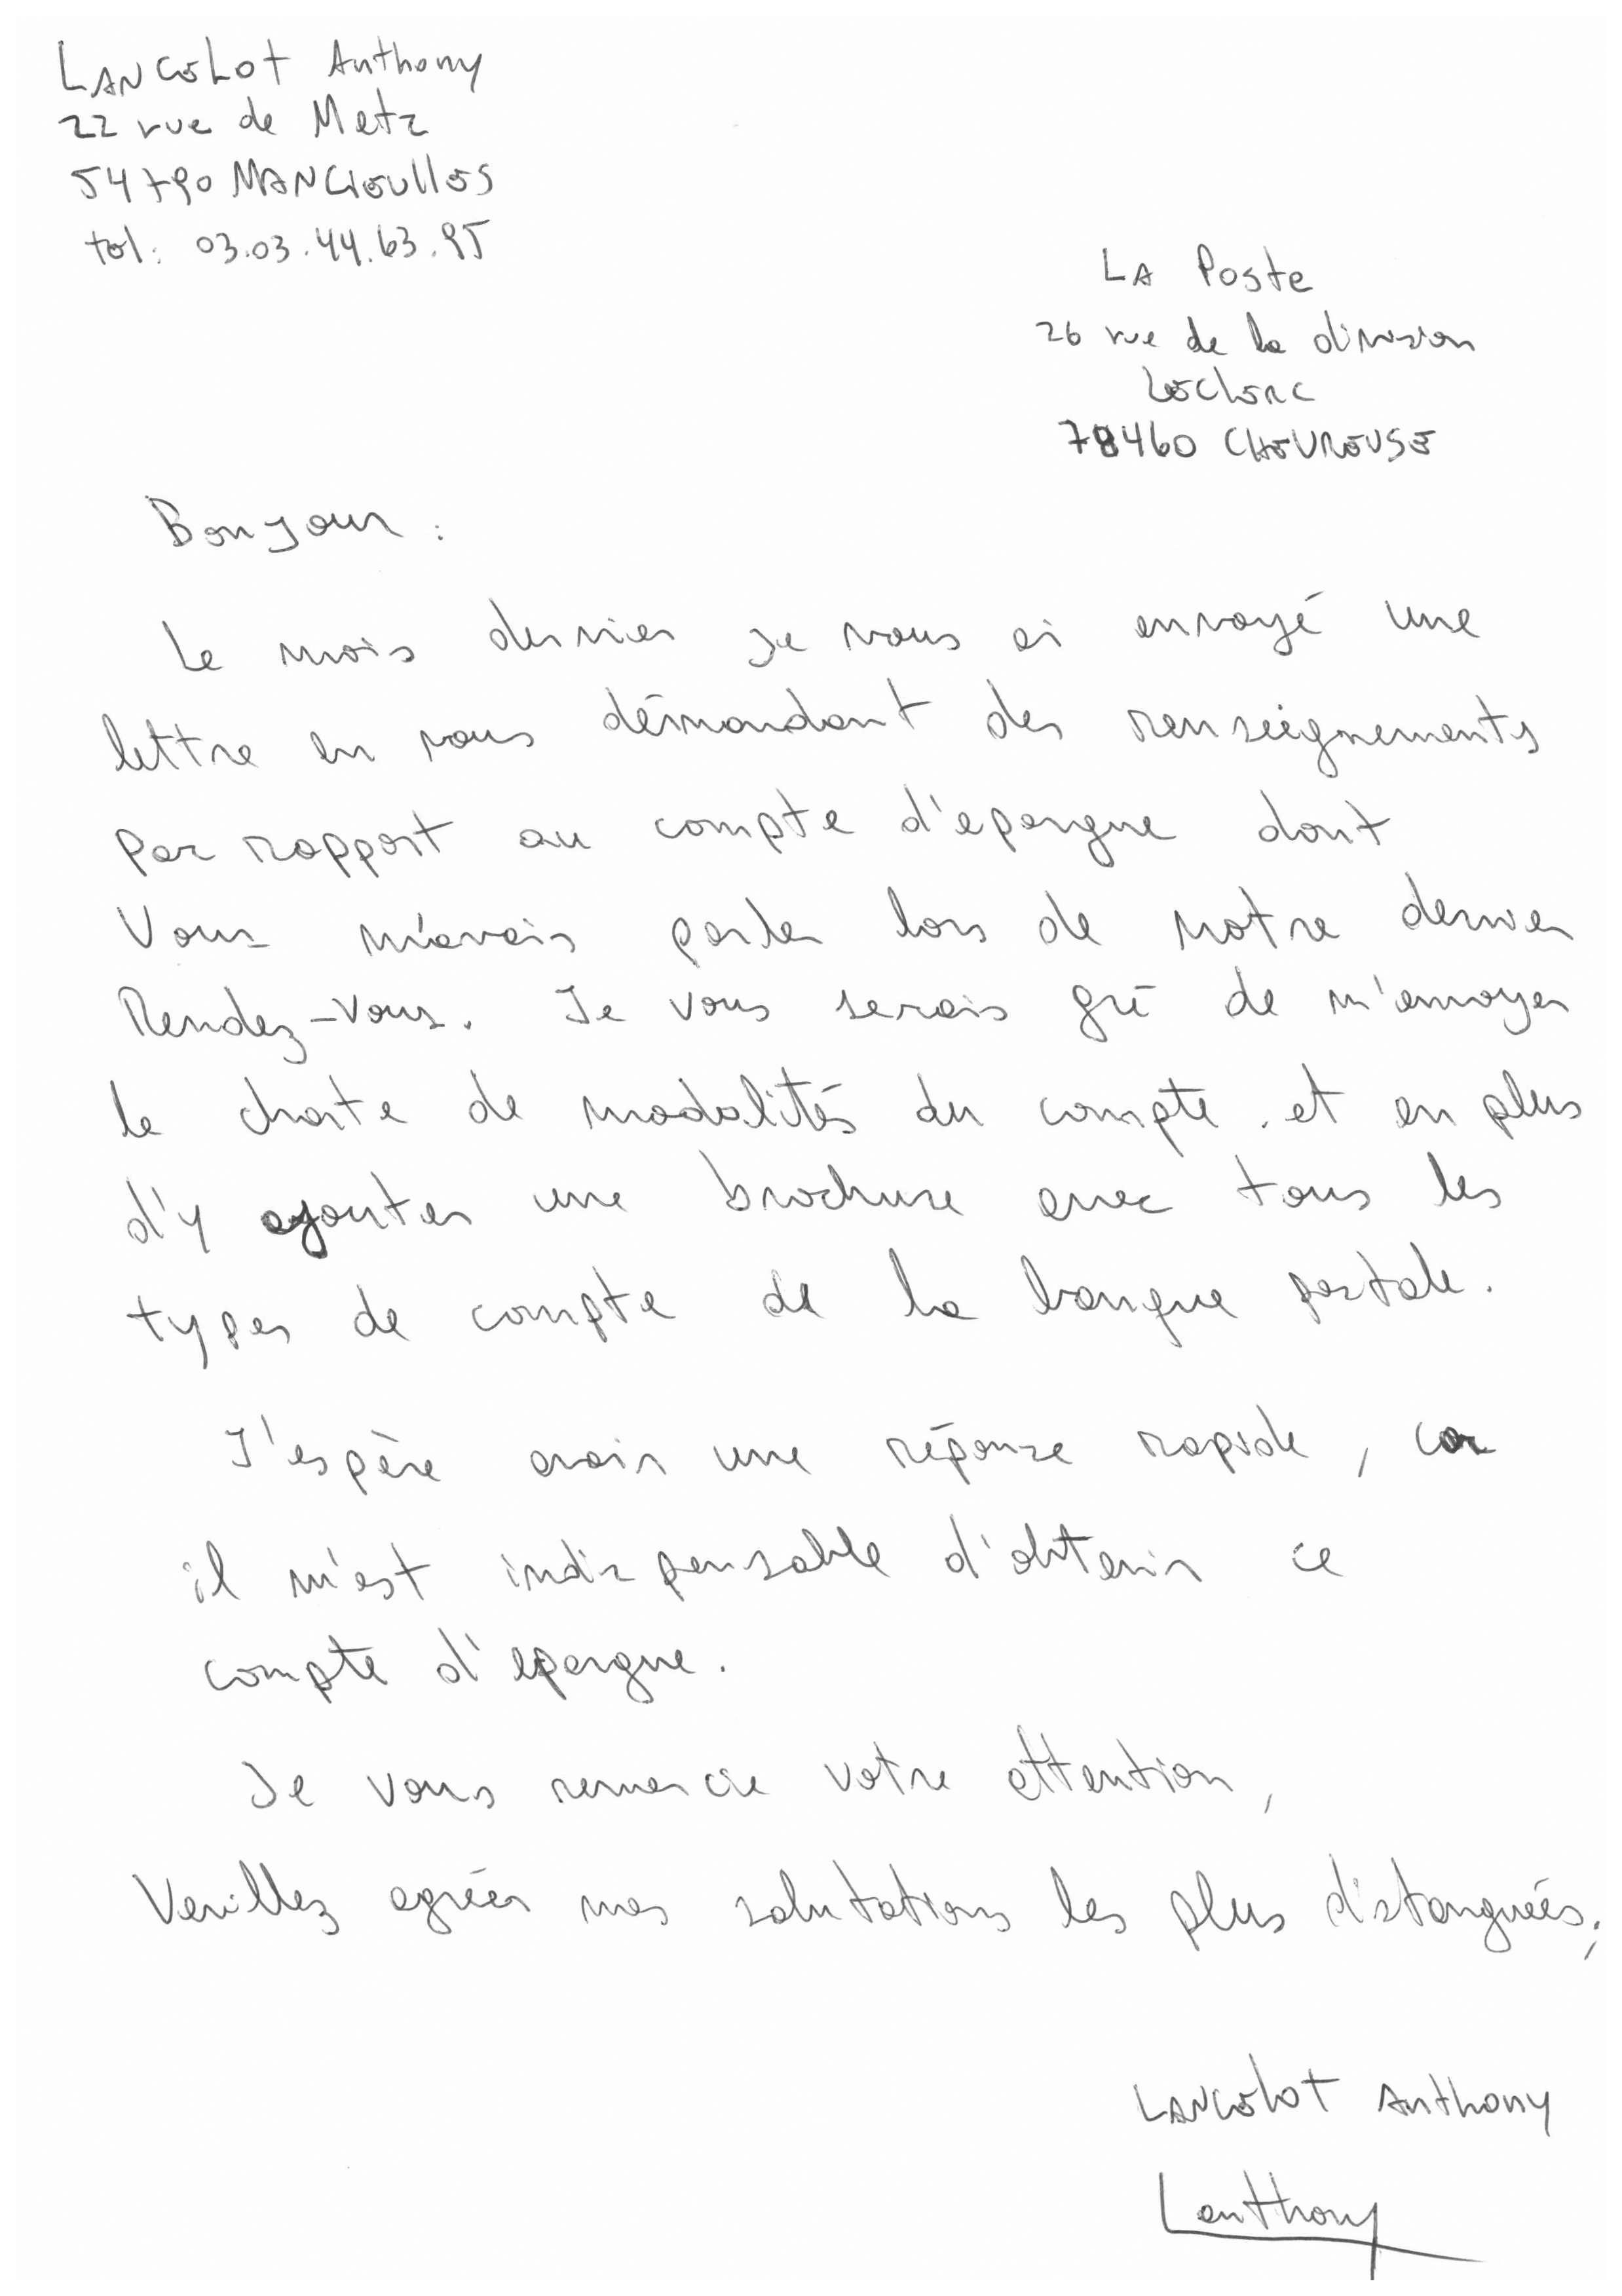 LANCELOT Anthony
22 rue de Metz
54790 MANCIEULLES
tel: 03.03.44.63.95
LA Poste
26 rue de la division
Leclerc
78460 CHEVREUSE
Bonjour :
Le mois dernier je vous ai envoyé une
lettre en vous démandant des renseignements
par rapport au compte d'epargne dont
Vous m'avais parler lors de notre dernier
Rendez-Vous. Je vous serais gré de m'envoyer
le charte de modalités du compte. et en plus
d'y ajouter une brochure avec tous les
types de compte de la banque postale.
J'espère avoir une réponse rapide, car
il m'est indispensable d'obtenir ce
compte d'epargne.
Je vous remercie votre attention,
Veuillez agréer mes salutations les plus distanguées;
LANCELOT Anthony
Lanthony